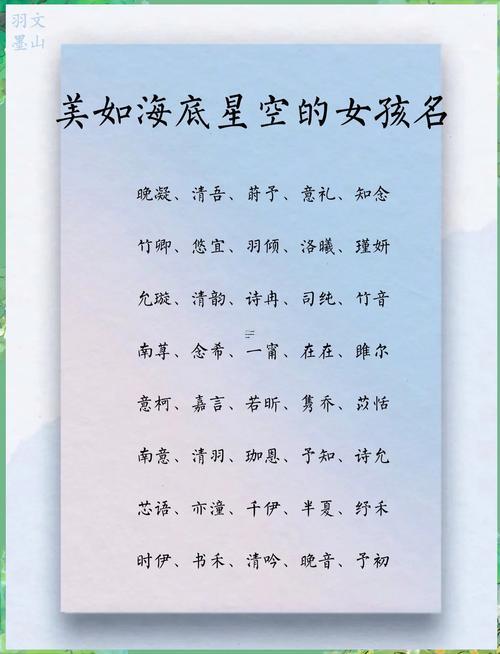 羽文
墨山
美如海底星空的女孩名
晚凝、清吾、莳予、意礼、知念
竹卿、悠宜、羽倾、洛曦、瑾妍
允璇、清韵、诗冉、司纯、竹音
南荨、念希、一甯、在在、雎尔
意柯、嘉言、若昕、隽乔、苡恬
南意、清羽、珈恩、予知、诗允
芯语、亦潼、千伊、半夏、纾禾
时伊、书禾、清吟、晚音、予初